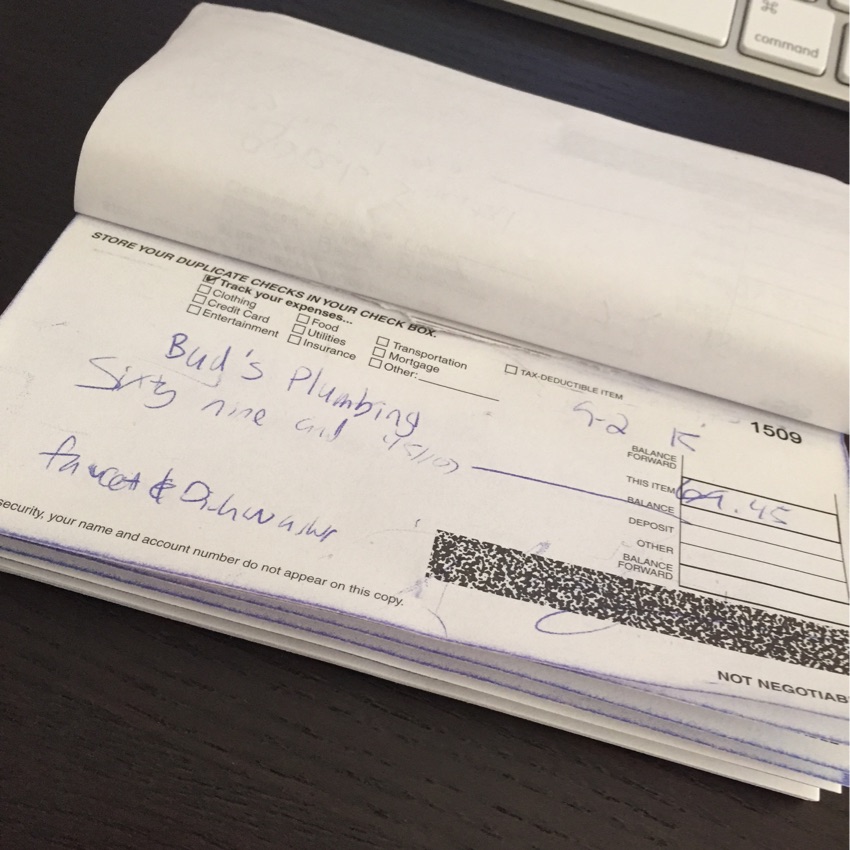 ⌘
command
STORE YOUR DUPLICATE CHECKS IN YOUR CHECK BOX.
Track your expenses...
Clothing
Credit Card
Entertainment
Food
Utilities
Insurance
Transportation
Mortgage
Other:
TAX-DEDUCTIBLE ITEM
1509
Bud's Plumbing
Sixty nine and 45/100
faucet & Dishwasher
BALANCE FORWARD
THIS ITEM 69.45
BALANCE
DEPOSIT
OTHER
BALANCE FORWARD
security, your name and account number do not appear on this copy.
NOT NEGOTIAB